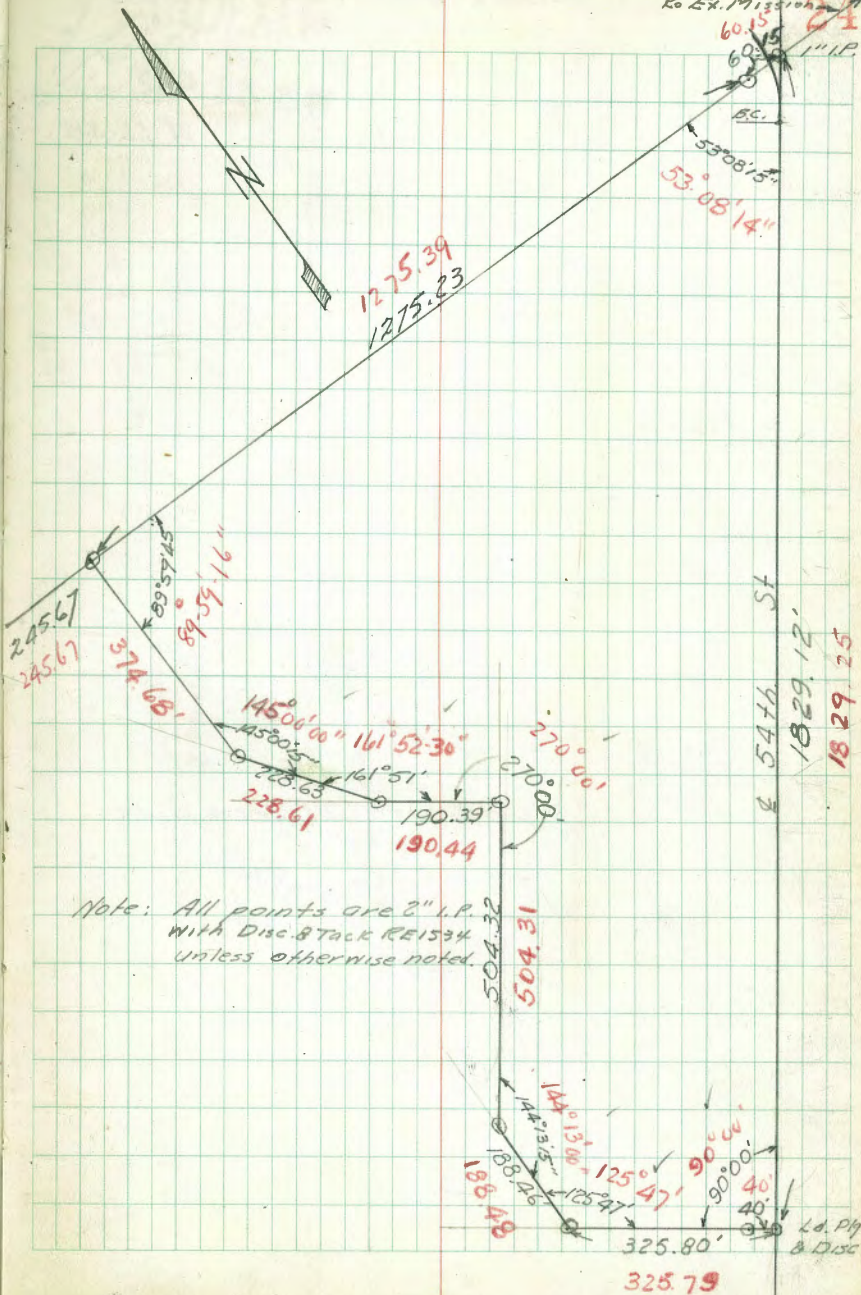 Ro Ex. Mission
24
60.15
60.15
1" I.P.
B.C.
53°08'15"
53.°08'14"
N
1275.39
1275.23
89°59'45
89°-59'-16"
245.67
245.67
374.68'
145°00'00"
145°00'15"
161°52'-30"
161°51'
228.63
228.61
270°00'
270°00'
190.39'
190.44
¢ 54th. St
1829.12'
1829.25
Note: All points are 2" I.P.
with Disc. & Tack RE1534
unless otherwise noted.
504.32
504.31
144°13'00"
144°13'15"
188.46'
188.48
125°47'
125°47'
90°00'
90°00'
40'
40'
Ld. Plg
& Disc
325.80'
325.79